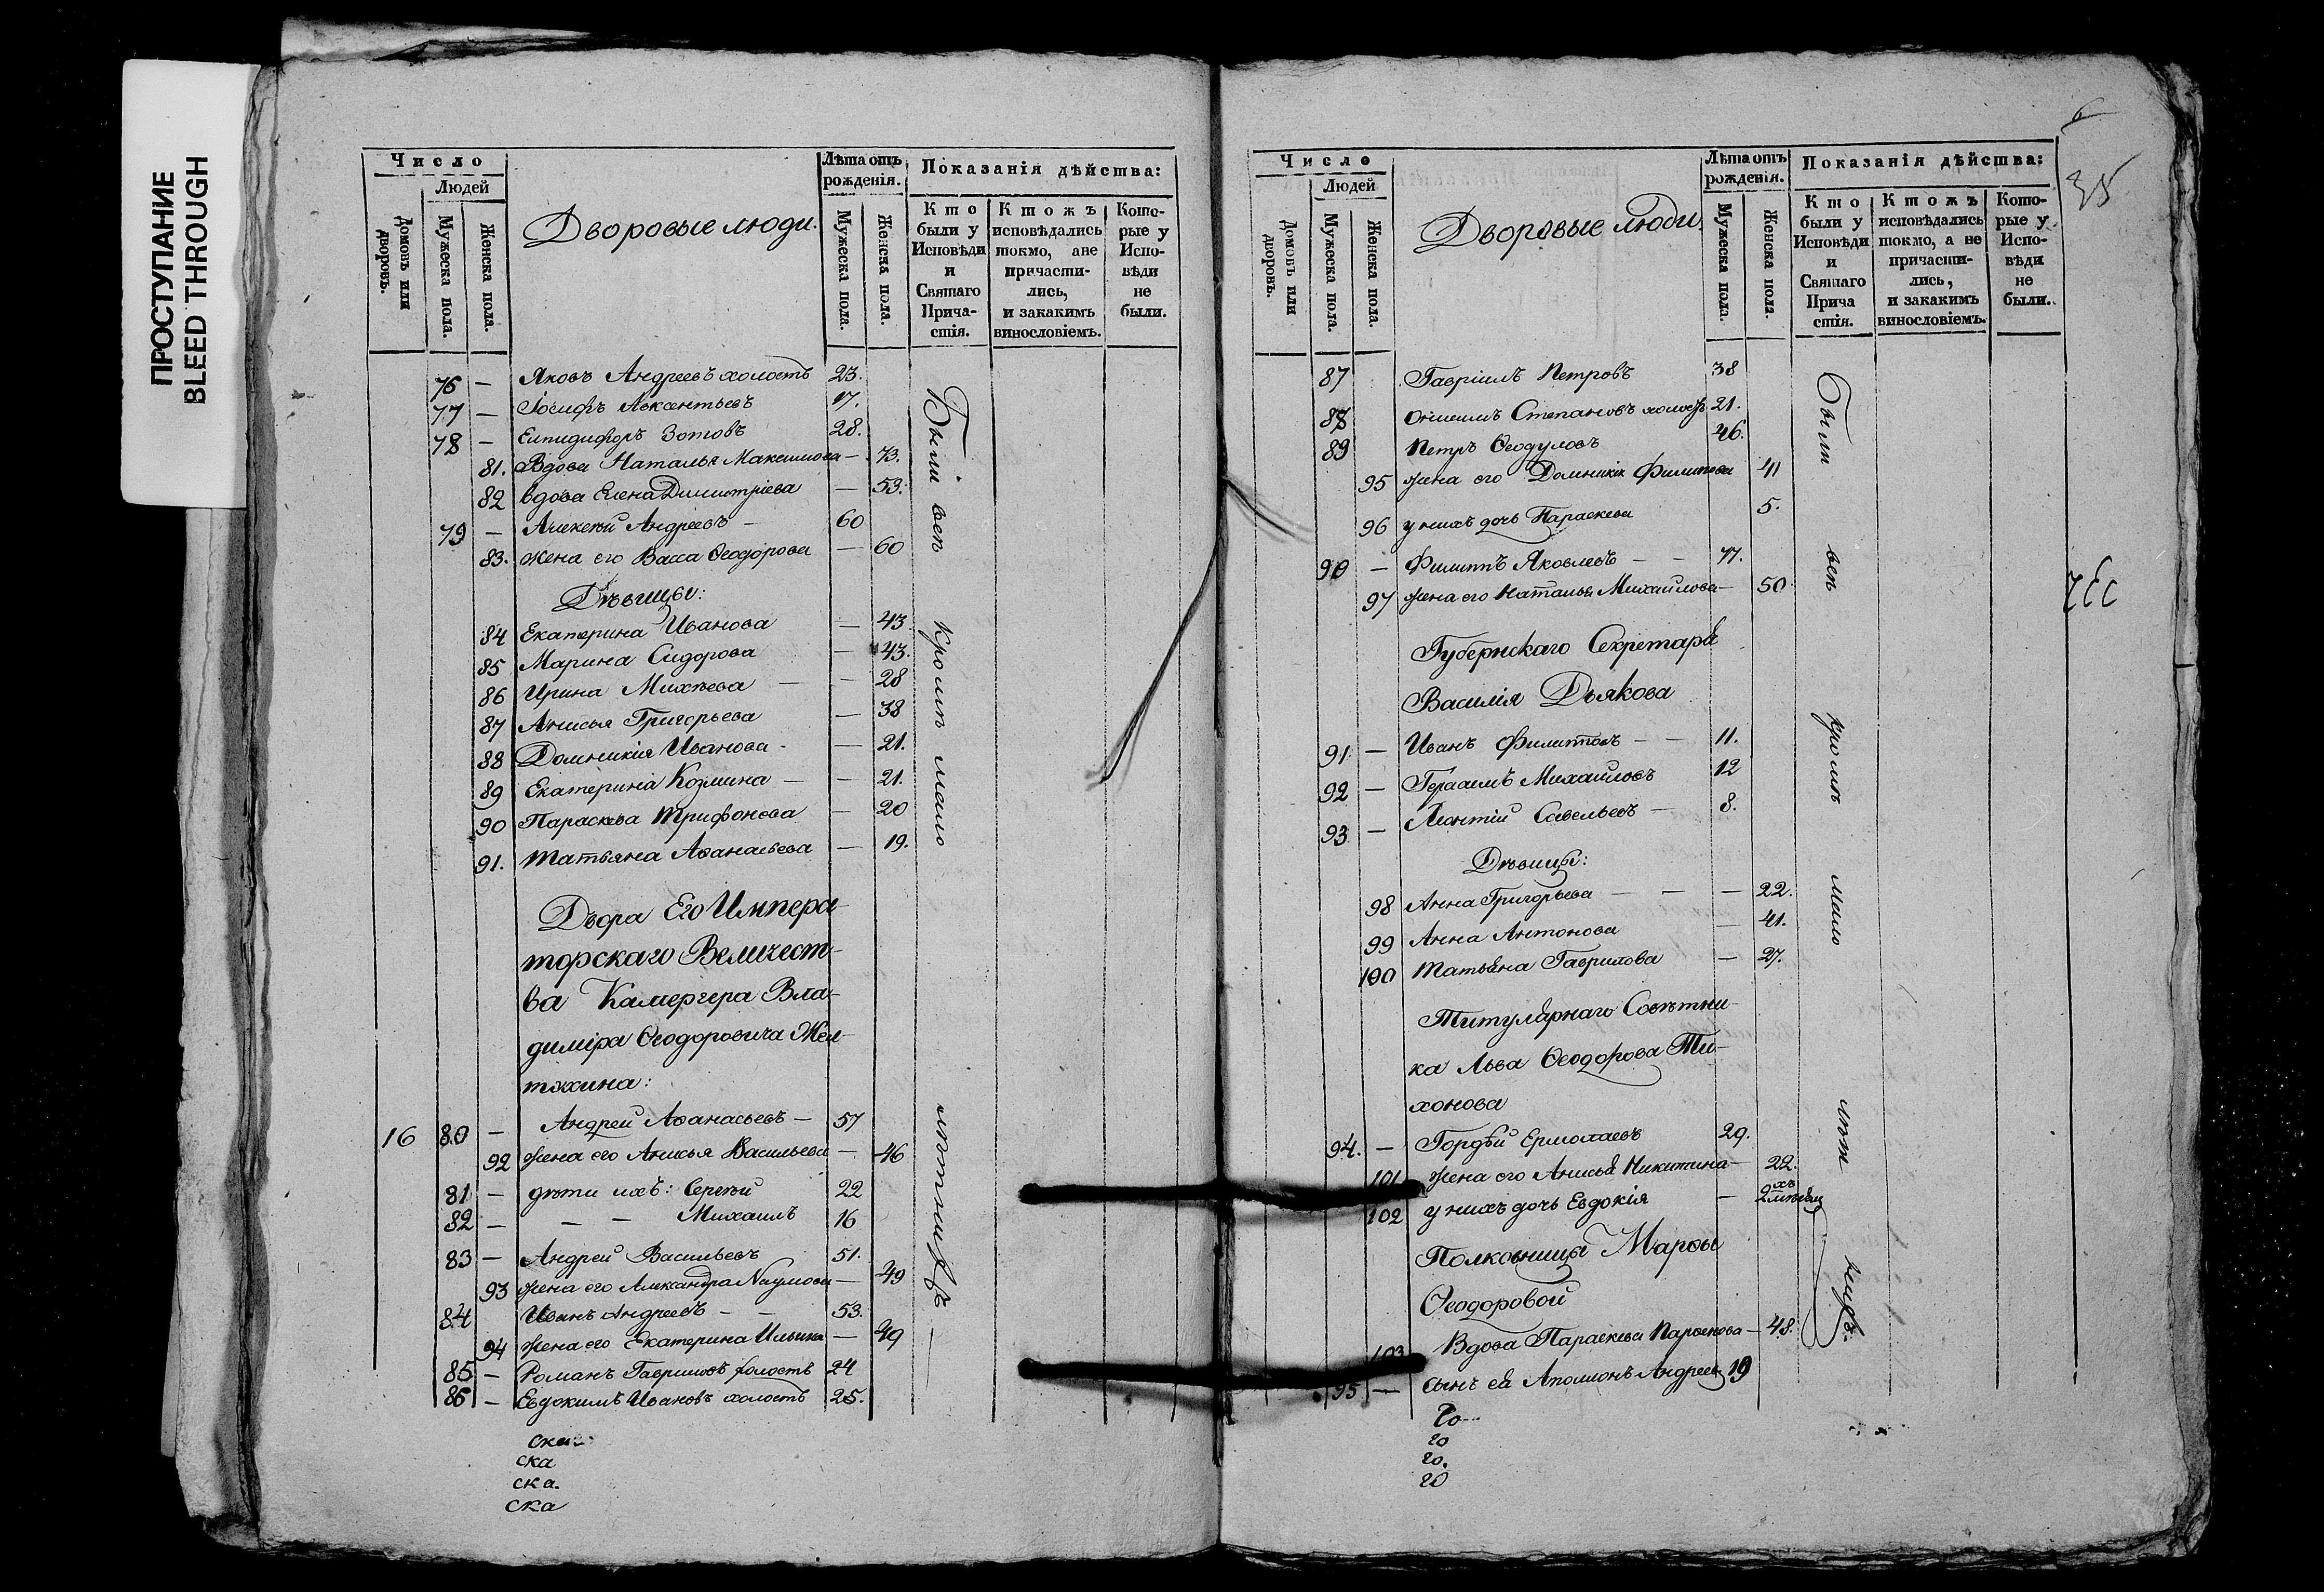 ПРОСТУПАНИЕ
BLEED THROUGH
Число
Людей
Домовъ или дворовъ.
Мужеска пола.
Женска пола.
Дворовые люди.
Лѣта отъ рожденія.
Мужеска пола.
Женска пола.
Показанія дѣйства:
Кто были у Исповѣди и Святаго Прича-стія.
Ктожъ исповѣдались токмо, а не причасти-лись, и закакимъ винословіемъ.
Кото-рые у Испо-вѣди не были.
76 — Яковъ Андреевъ холостъ 23.
77 — Іосифъ Авксентьевъ 17.
78 — Елпидифоръ Зотовъ 28.
81. Вдова Наталья Максимова — 73.
82 вдова Елена Димитріева — 53.
79 — Алексѣй Андреевъ — 60
83. жена его Васса Ѳеодорова — 60
Дѣвицы:
84 Екатерина Иванова — 43
85 Марина Сидорова — 43.
86 Ирина Михѣева — — 28
87 Анисья Григорьева — 38
88 Домникія Иванова — 21.
89 Екатерина Козмина — — 21.
90 Параскева Трифонова — 20
91. Татьяна Аѳанасьева — 19.
Двора Его Импера-
торскаго Величест-
ва Камергера Вла-
диміра Ѳеодоровича Жел-
тухина:
16 80 — Андрей Аѳанасьевъ — 57
92 жена его Анисья Васильева — 46
81 — дѣти ихъ: Сергѣй 22
82 — — — Михаилъ 16
83 — Андрей Васильевъ 51.
93 жена его Александра Наумова — 49
84 Иванъ Андреевъ — — 53.
94 жена его Екатерина Ильина — 49
85 — Романъ Гавриловъ холостъ 24
86 — Евдокимъ Ивановъ холостъ 25.
Были всѣ кромѣ мало лѣтнихъ —
ска
ска
ска.
ска
Число
Людей
Домовъ или дворовъ.
Мужеска пола.
Женска пола.
Дворовые люди.
Лѣта отъ рожденія.
Мужеска пола.
Женска пола.
Показанія дѣйства:
Кто были у Исповѣди и Святаго Прича стія.
Ктожъ исповѣдались токмо, а не причасти-лись, и закакимъ винословіемъ.
Кото-рые у Испо-вѣди не были.
35
87 Гавріилъ Петровъ 38
88 Онисимъ Степановъ холостъ 21.
89 Петръ Ѳеодуловъ 46.
95 жена его Домникія Филипова 41
96 у нихъ дочь Параскева 5.
90 — Филиппъ Яковлевъ — — 77.
97 жена его Наталья Михайлова — 50
Губернскаго Секретаря
Василія Дьякова
91 — Иванъ Филиповъ — — 11.
92 — Герасимъ Михайловъ 12
93 — Леонтій Савельевъ — 8.
Дѣвицы:
98 Анна Григорьева — — — 22.
99 Анна Антонова — 41.
100 Татьяна Гаврилова — 27.
Титулярнаго Совѣтни-
ка Льва Ѳеодорова Ти-
хонова
94. — Гордѣй Ермолаевъ 29.
101 жена его Анисья Никитина — 22.
102 у нихъ дочь Евдокія — 2хъ
Полковницы Марѳы
Ѳеодоровой
103 Вдова Параскева Парѳенова — 48.
95 — сынъ ея Аполлонъ Андреевъ 19
Были всѣ кромѣ мало лѣт нихъ.
го
го
го.
го